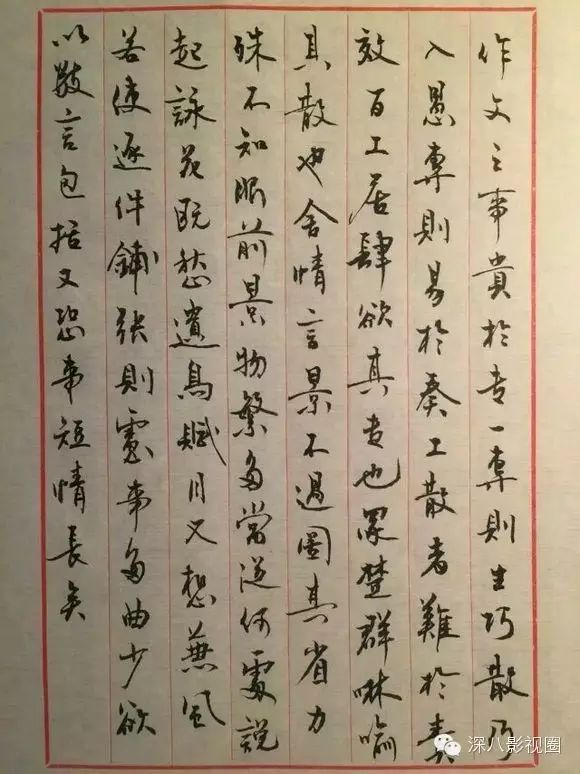 作文之事貴於专一專則生巧散乃
入愚專則易於奏工散者難於責
效百工居肆欲其专也眾楚群咻喻
其散也舍情言景不過圖其省力
殊不知眼前景物繁多當從何處說
起詠花既愁遺鳥賦月又想兼風
若使逐件鋪張則慮事多曲少欲
以數言包括又恐事短情長矣
深八影视圈